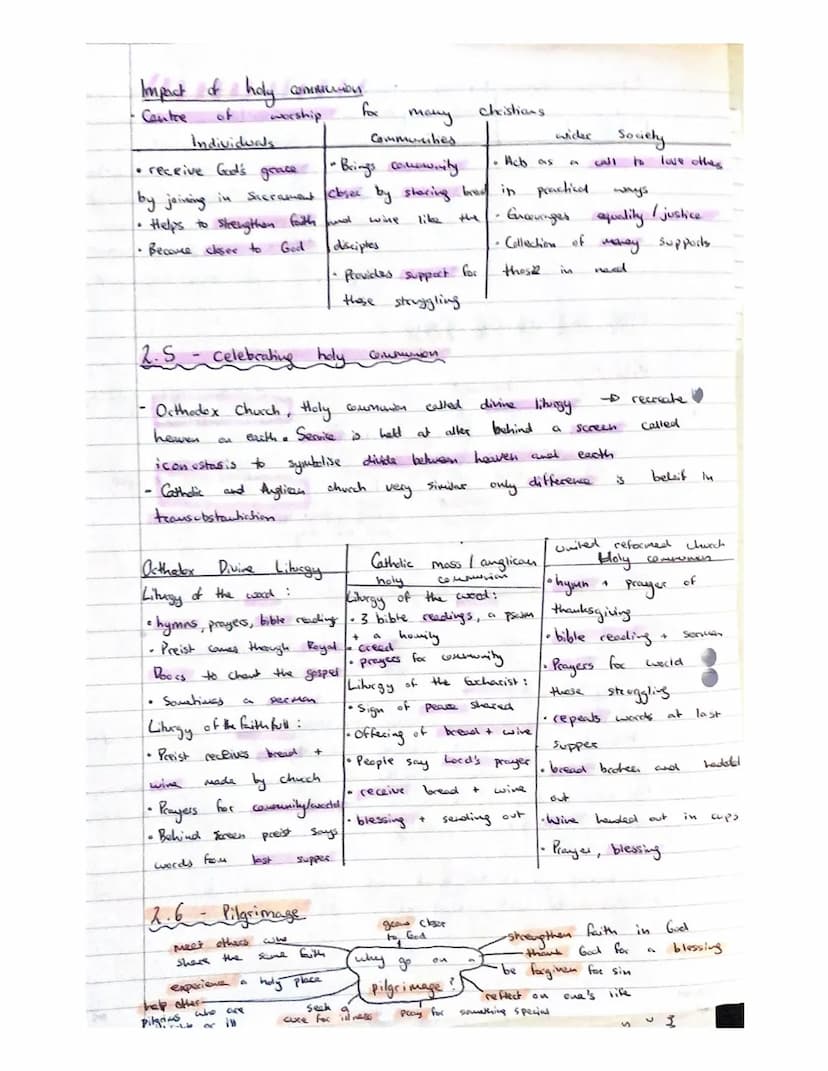 Impact of holy communion
- Centre of worship for many christians
Individuals
• receive God's grace
by joining in Sacrament
• Helps to strengthen faith
• Become closer to God
Communities
• Brings community
closer by sharing bread
and wine like the
disciples
• Provides support for
those struggling
wider Society
• Acts as a call to love others
in practical ways
• Encourages equality / justice
• Collection of money supports
those in need
2.5 - Celebrating holy communion
- Orthodox Church, Holy communion called divine liturgy → recreate
heaven on earth. Service is held at alter behind a screen called
iconostasis to symbolise divide between heaven and earth
- Catholic and Anglican church very similar only difference is belief in
transubstantiation
Orthodox Divine Liturgy
Liturgy of the word :
• hymns, prayers, bible reading
• Preist comes through Royal
Doors to chant the gospel
• Sometimes a sermon
Liturgy of the faithfull :
• Preist receives bread +
wine made by church
• Prayers for community/world
• Behind screen preist says
words from last supper
Catholic mass / anglican
holy communion
Liturgy of the word:
• 3 bible readings, a psalm
+ a homily
• creed
• prayers for community
Liturgy of the Eucharist :
• Sign of peace shared
• Offering of bread + wine
• People say Lord's prayer
• receive bread + wine
• blessing + sending out
united reformed church
Holy communion
• hymn + prayer of
thanksgiving
• bible reading + sermon
• Prayers for world
those struggling
• repeats words at last
supper
• bread broken and handed
out
• Wine handed out in cups
• Prayer, blessing
2.6 - Pilgrimage
grow closer
to God
meet others who
share the same faith
experience a holy place
help other
pilgrims who are
or ill
why go on a
pilgrimage ?
strengthen faith in God
thank God for a blessing
be forgiven for sin
reflect on one's life
seek a
cure for illness
pray for something special